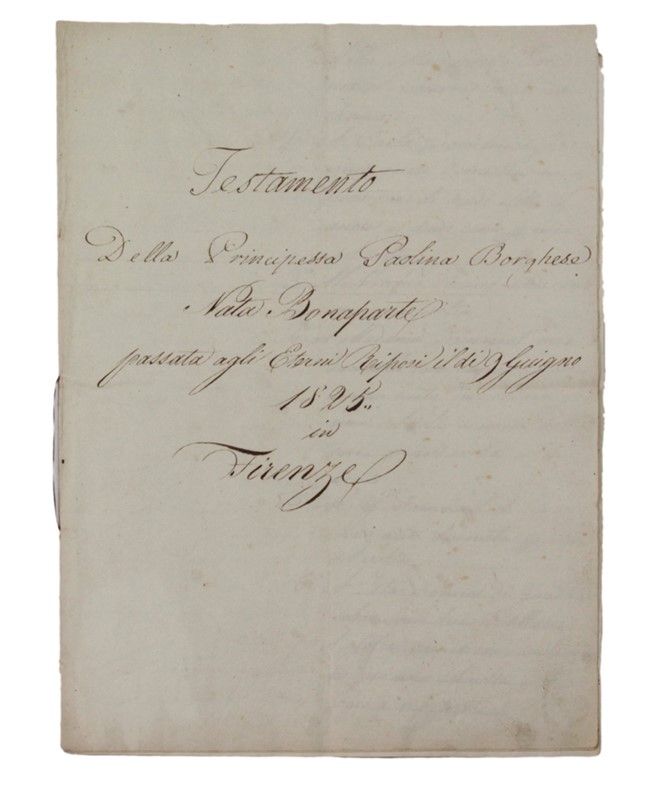 Testamento
Della Principessa Paolina Borghese
Nata Bonaparte
passata agli Eterni Riposi il di 9 Guigno
1825..
in
Firenze